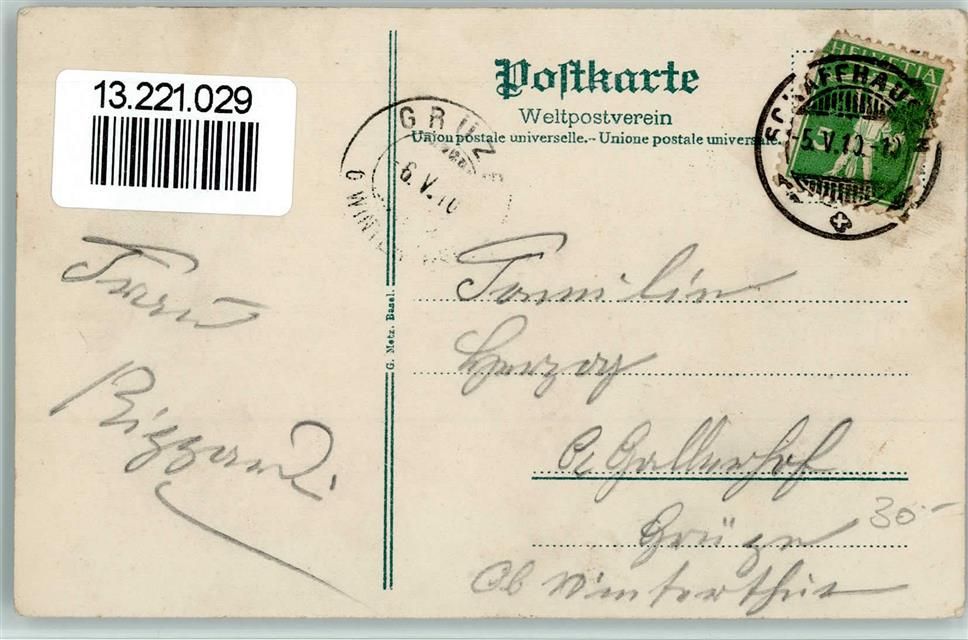 13.221.029
Postkarte
Weltpostverein
Union postale universelle. - Unione postale universale.
HELVETIA
5
SCHAFFHAUSEN
5.V.10.-10
GRÜZE
6.V.10
G. Metz, Basel.
Frau
Rizzardi
Familie
Herzog
Gallerhof
Grüze
Ob Winterthur
30.-